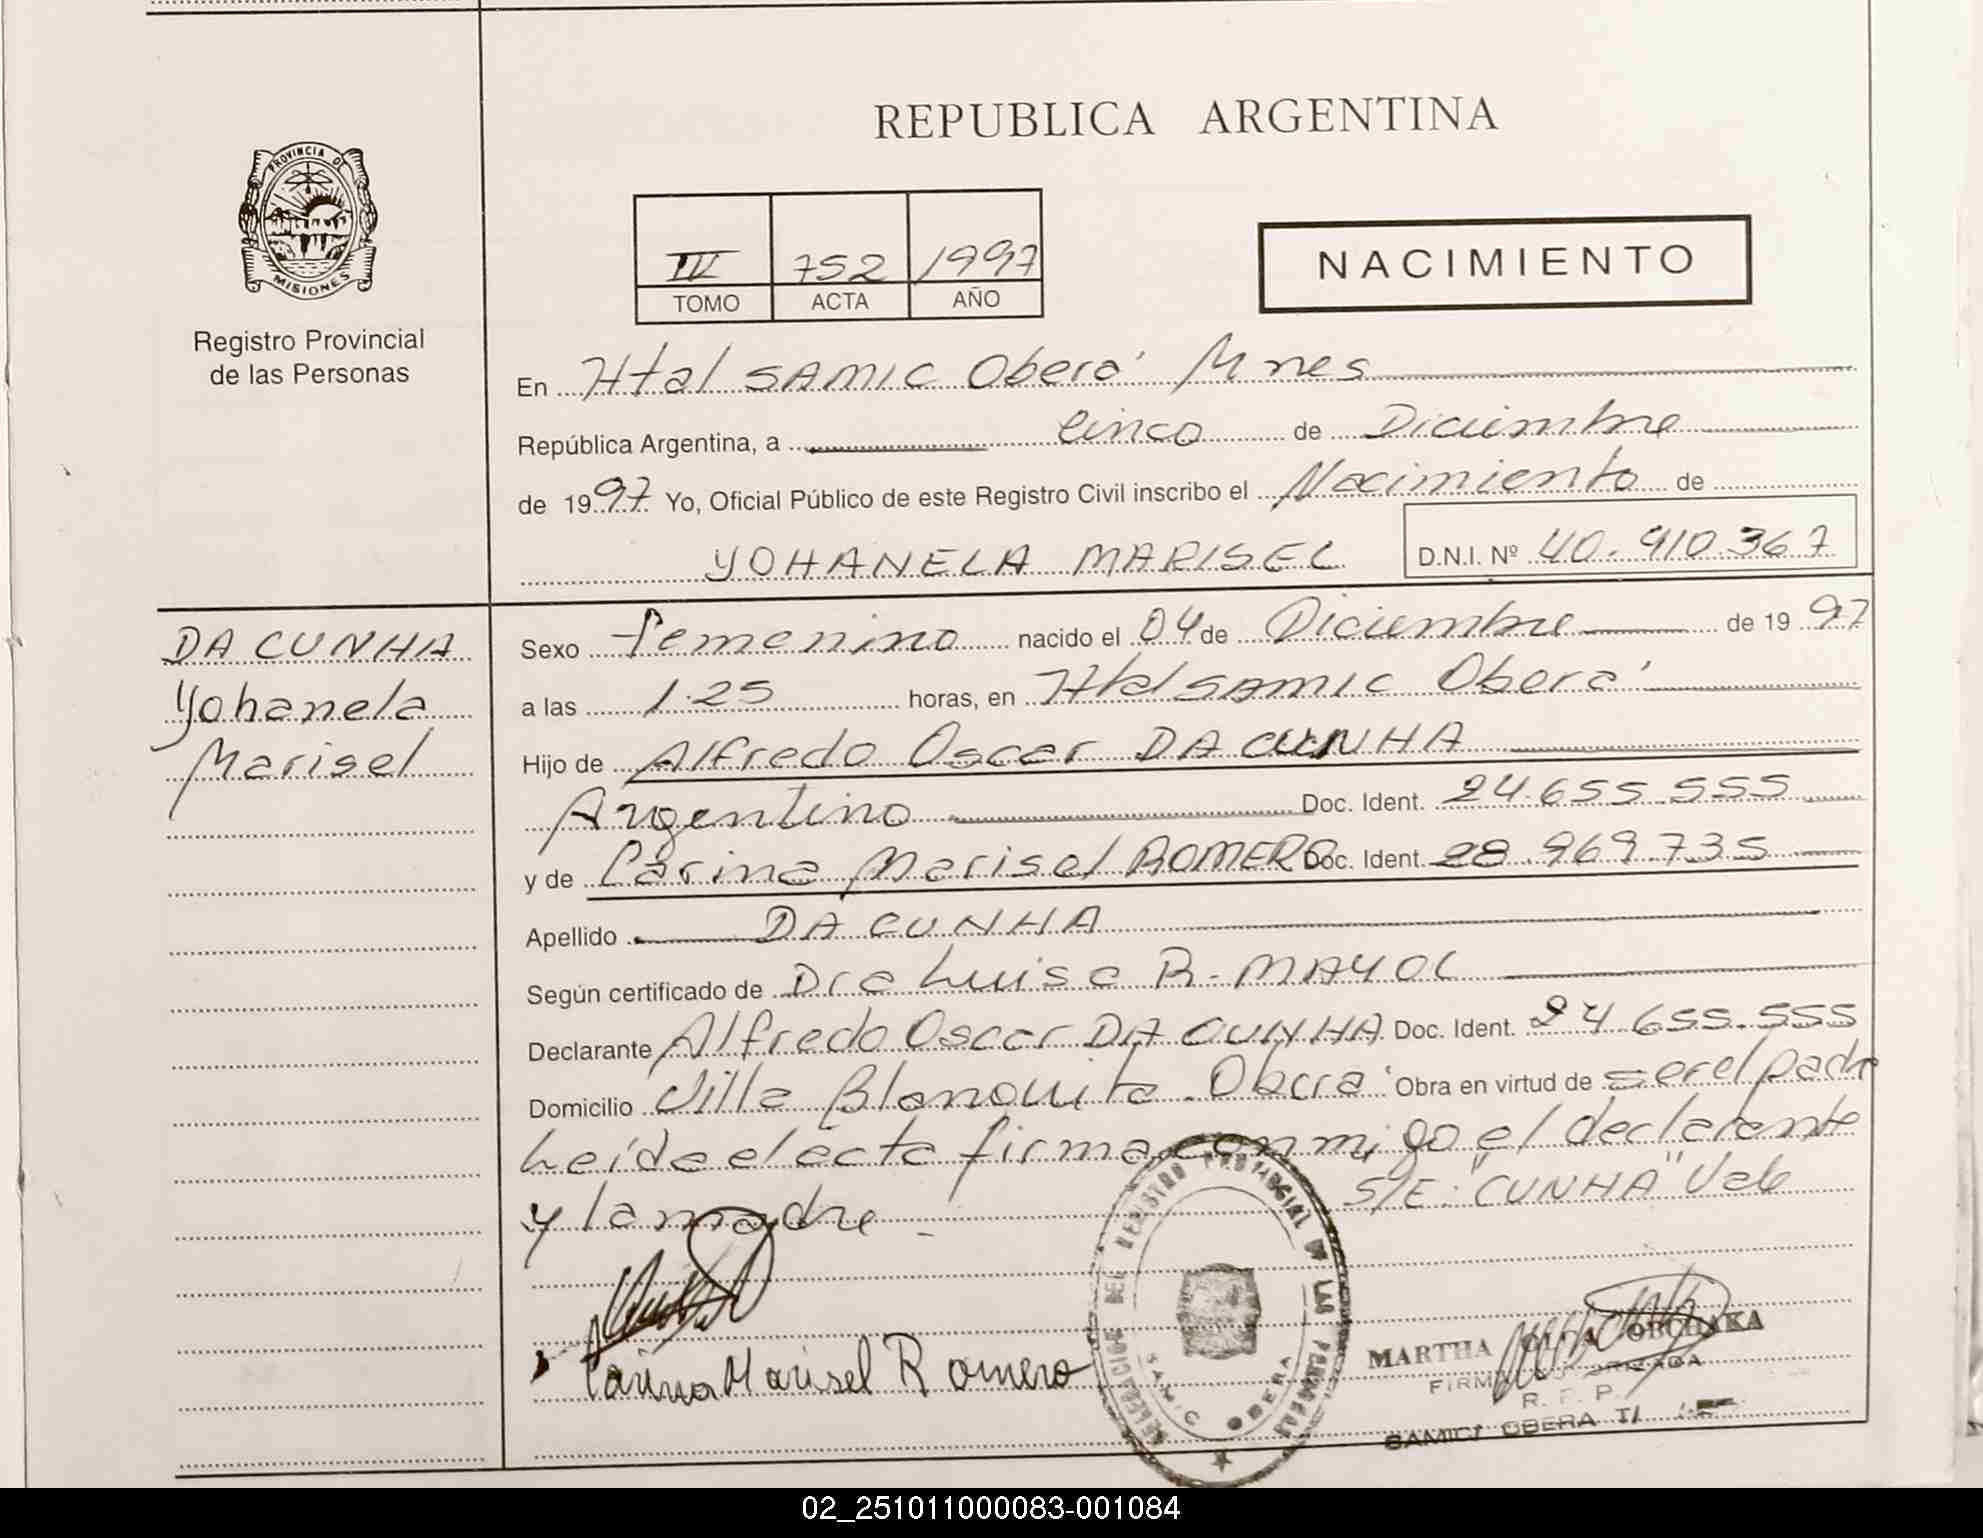 REPUBLICA ARGENTINA
PROVINCIA DE
MISIONES
Registro Provincial
de las Personas
IV 752 1997
TOMO ACTA AÑO
NACIMIENTO
En Htal SAMIC Oberá Mnes
República Argentina, a cinco de Diciembre
de 1997 Yo, Oficial Público de este Registro Civil inscribo el Nacimiento de
YOHANELA MARISEL D.N.I. Nº 40.910.367
DA CUNHA
Yohanela
Marisel
Sexo femenino nacido el 04 de Diciembre de 1997
a las 1.25 horas, en Htal SAMIC Oberá
Hijo de Alfredo Oscar DA CUNHA
Argentino Doc. Ident. 24.655.555
y de Carina Marisel ROMERO Doc. Ident. 28.969.735
Apellido DA CUNHA
Según certificado de Dra Luisa R. MAYOL
Declarante Alfredo Oscar DA CUNHA Doc. Ident. 24.655.555
Domicilio Villa Blanquita Oberá Obra en virtud de ser el padre
Leída el acta firma conmigo el declarante
y la madre
S/E: "CUNHA" Vale
Carina Marisel Romero
DELEGACION DEL REGISTRO PROVINCIAL DE LAS PERSONAS
SAMIC OBERA
MARTHA OLGA OBCHAKA
FIRMA AUTORIZADA
R. P. P.
SAMIC OBERA
02_251011000083-001084